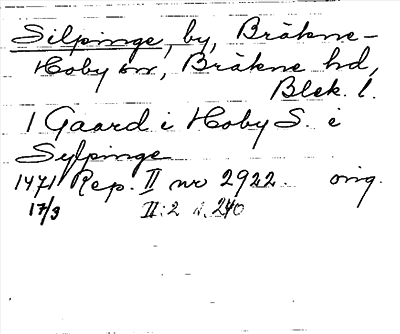 Silpinge, by, Bräkne-
Hoby sn, Bräkne hd,
Blek. l.
1 Gaard i Hoby S. i
Sylpinge
1471 Rep. II nr 2922. orig.
17/3 II:2 s. 240